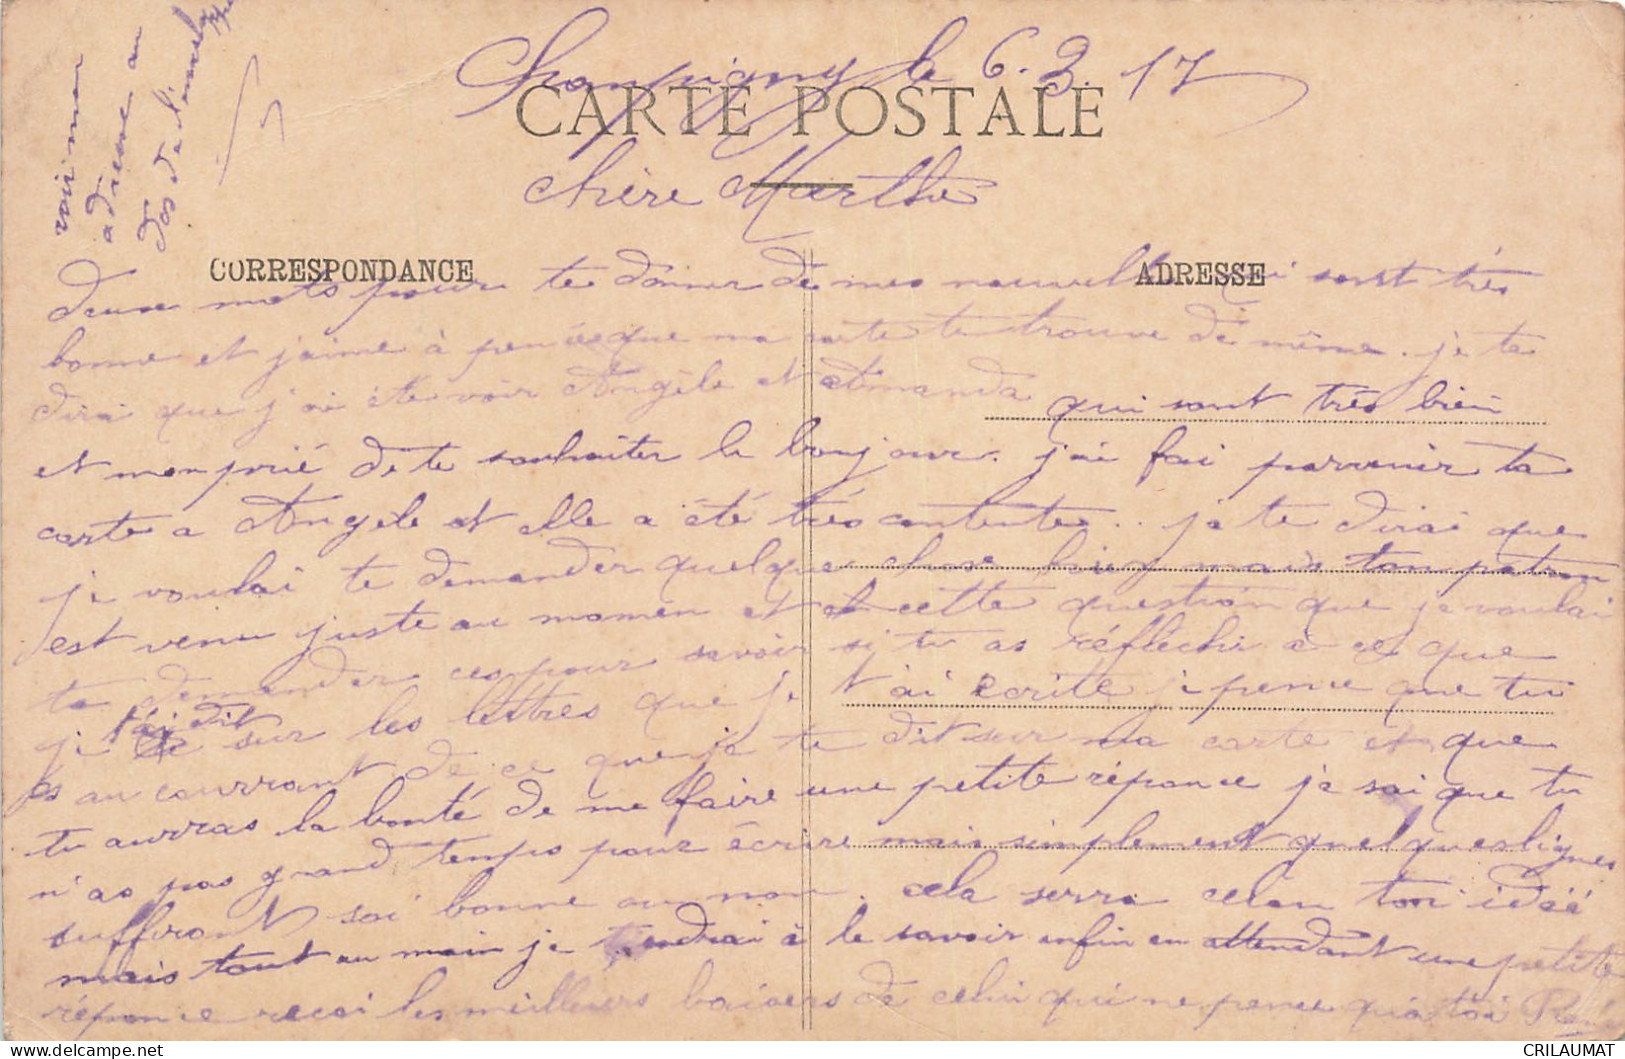 Champigny le 6.3.17
CARTE POSTALE
chère Marthe
voici mon
adresse au
dos de l'envelo
CORRESPONDANCE
ADRESSE
deux mots pour te donner de mes nouvelles qui sont très
bonne et j'aime à pensé que ma carte te trouve de même. je te
dirai que j'ai été voir Angèle et Amanda qui sont très bien
et mon prié de te souhaiter le bonjour. j'ai fai parvenir ta
carte a Angèle et elle a été très contente.. je te dirai que
je voulai te demander quelque chose hier mais ton patron
est venu juste au momen et cette question que je voulai
te demander ces pour savoir si tu as réfléchi a ce que
je t'ai dit sur les lettres que je t'ai écrite je pense que tu
es au courrant de ce que je te dit sur ma carte et que
tu aurras la bonté de me faire une petite réponce je sai que tu
n'as pas grand temps pour écrire mais simplement quelques lignes
suffiront soi bonne ou non. cela serra celon ton idéé
mais tout au moin je tiendrai à le savoir enfin en attendant une petite
réponce recoi les meilleurs baisers de celui qui ne pense qu'a toi René
CRILAUMAT
delcampe.net